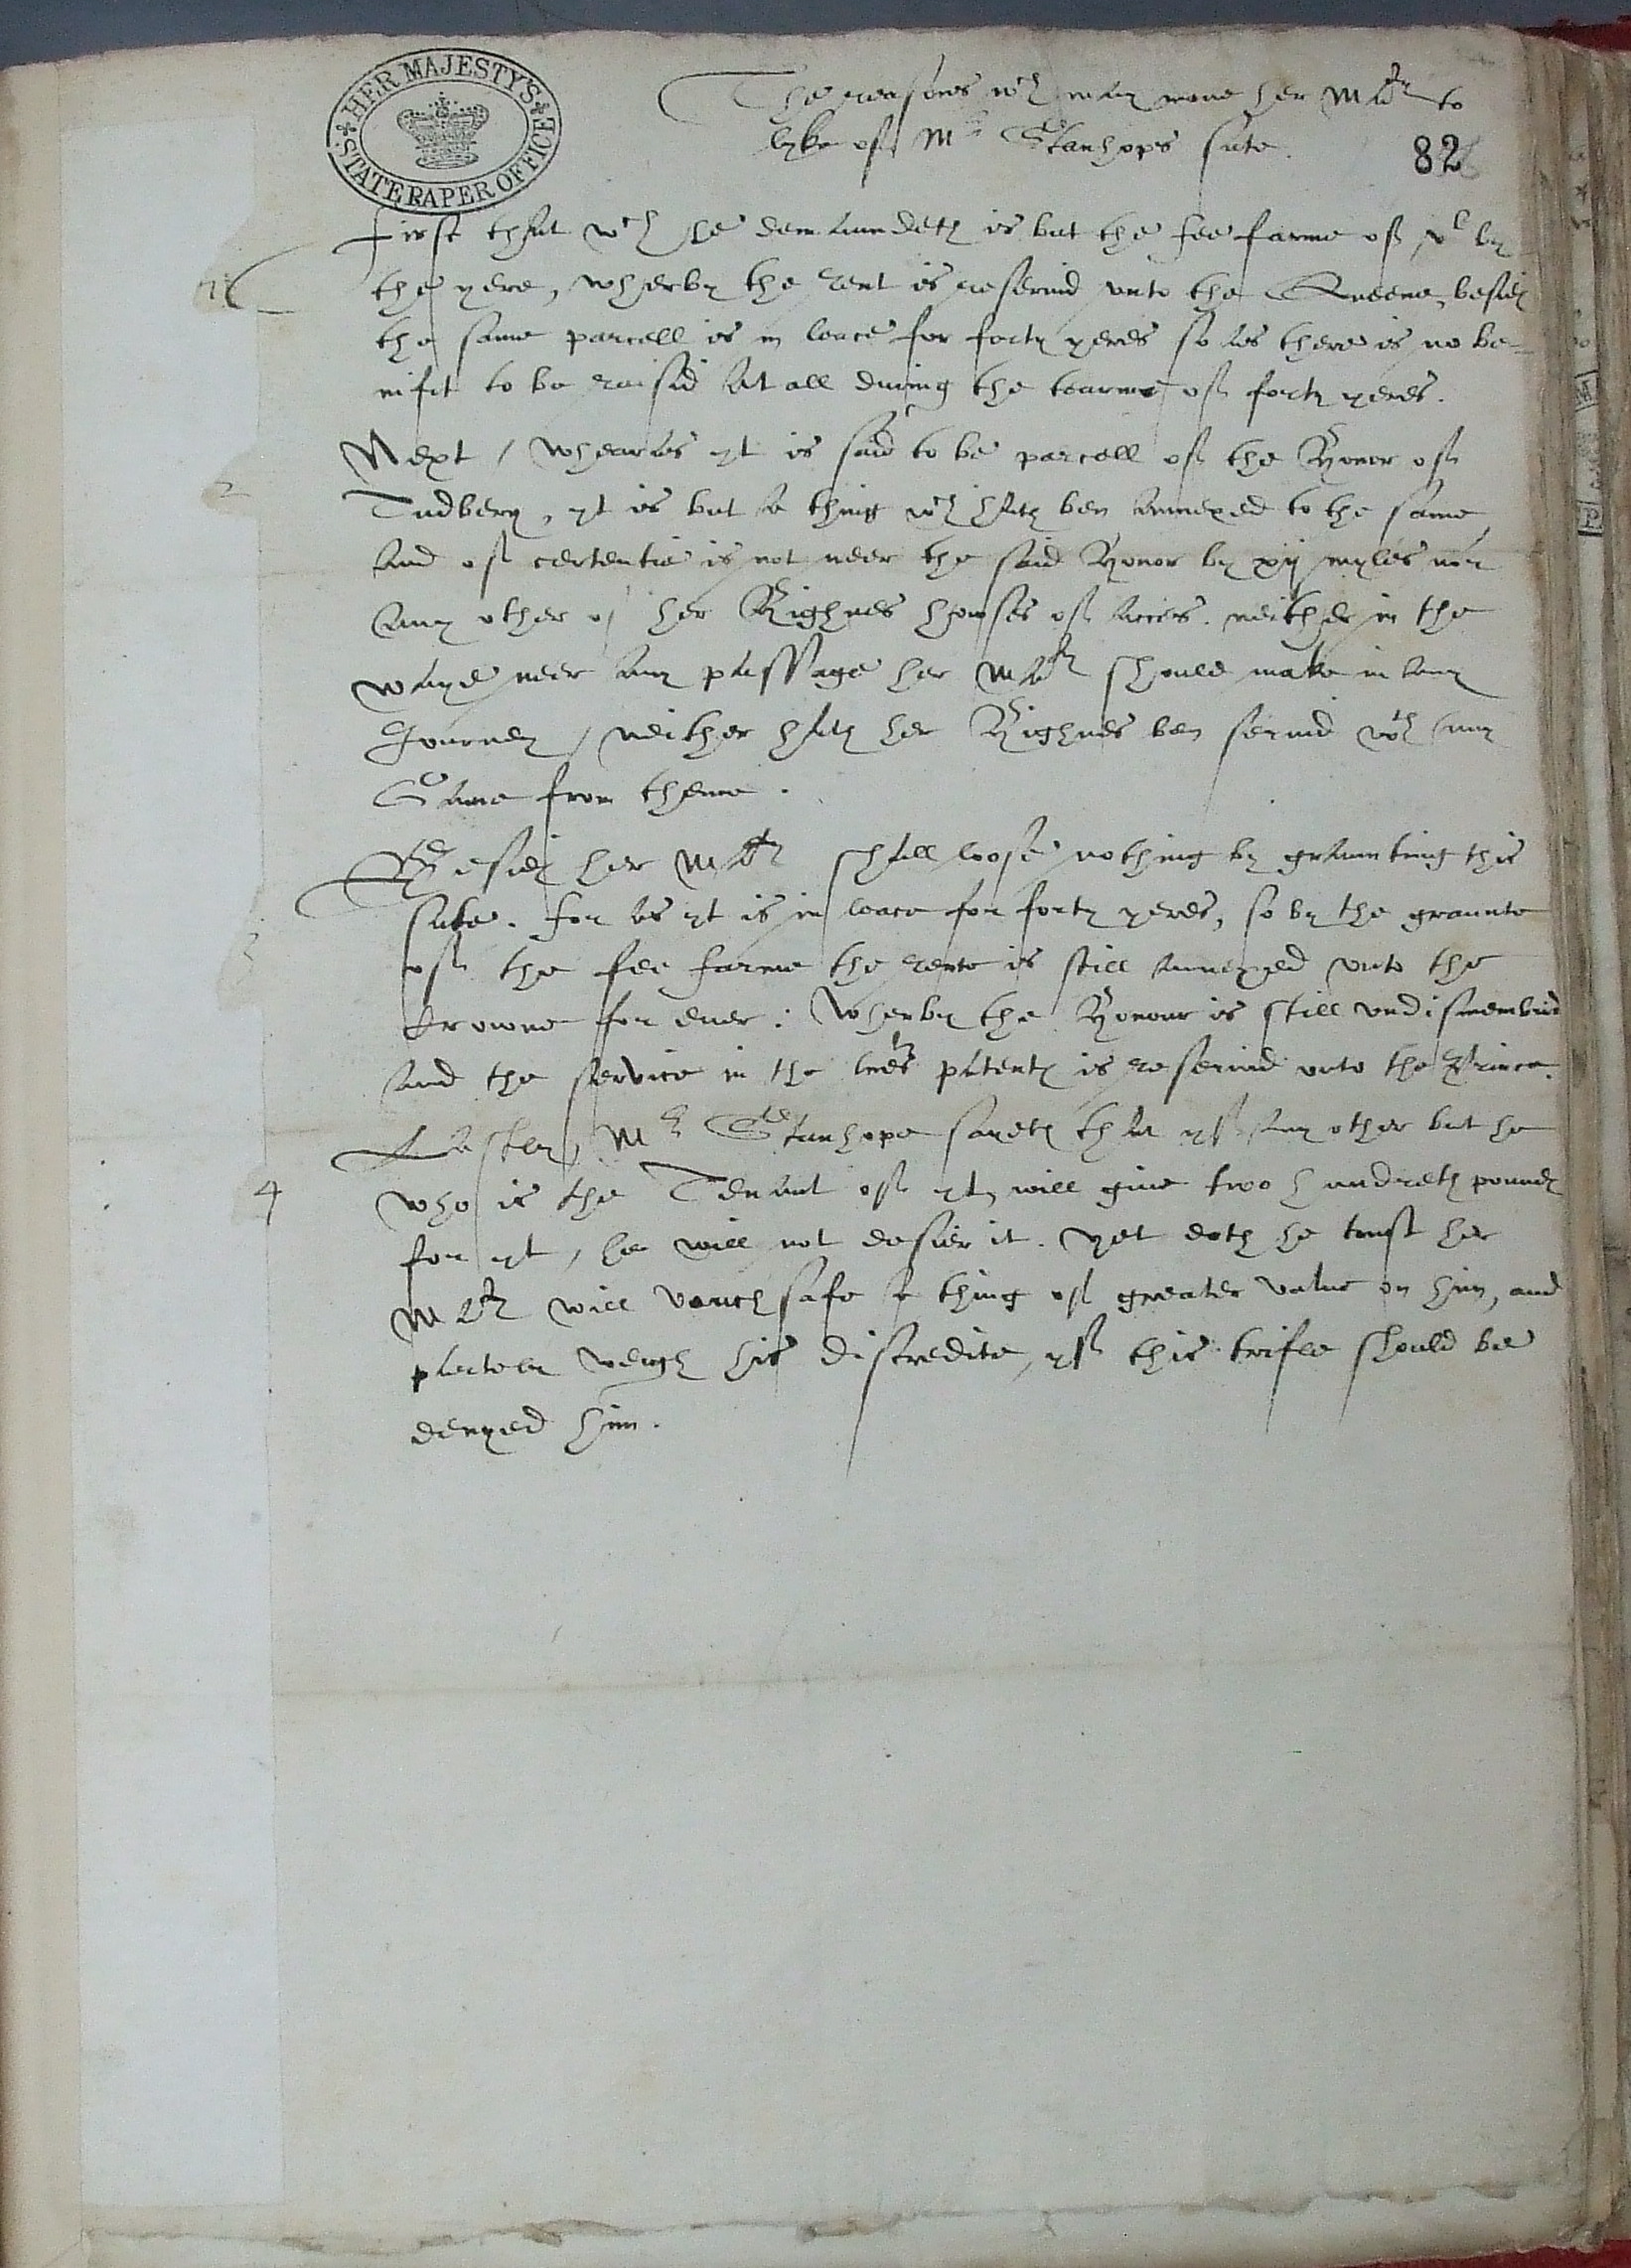 HER MAJESTY'S
STATE PAPER OFFICE
The reasons wch may moue her Matie to
lyke of Mr Stanhops sute.
82
1
First that wch he demaundeth is but the fee farme of vl by
the yere, wherby the rent is reseruid vnto the Queene, besides
the same parcell is in leace for forty yeres so as there is no be-
nifit to be raisid at all during the tearme of forty yeres.
2
Next / whearas yt is said to be parcell of the Honor of
Tudbery, yt is but a thing wch hath ben annexed to the same,
and of certentie is not neer the said Honor by xij myles nor
any other of her Highnes howses of acces. neither in the
waye neer any passage her Matie should make in any
Journey / neither hath her Highnes ben seruid wth any
Game from thence.
3
Besides her Matie shall loose nothing by graunting this
sute. for as yt is in leace for forty yeres, so by the graunte
of the fee farme the rente is still annexed vnto the
Crowne for euer: Wherby the Honour is still vndismembrid
and the service in the lres patents is reseruid vnto the Prince.
4
Lastly, Mr Stanhope sayeth that yf any other but he
who is the Tenant of yt, will giue two hundreth pounds
for yt, he will not desier it. yet doth he trust her
Matie will vouchsafe a thing of greater value on him, and
weigh his discredite, yf this trifle should be
denyed him.